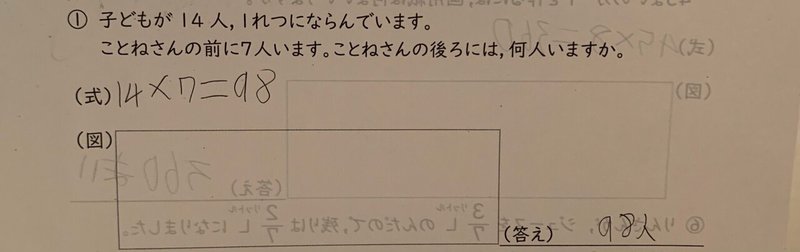 ① 子どもが 14人,1れつにならんでいます。
ことねさんの前に7人います。ことねさんの後ろには,何人いますか。
(式) 14×7=98
(図)
(答え) 98人